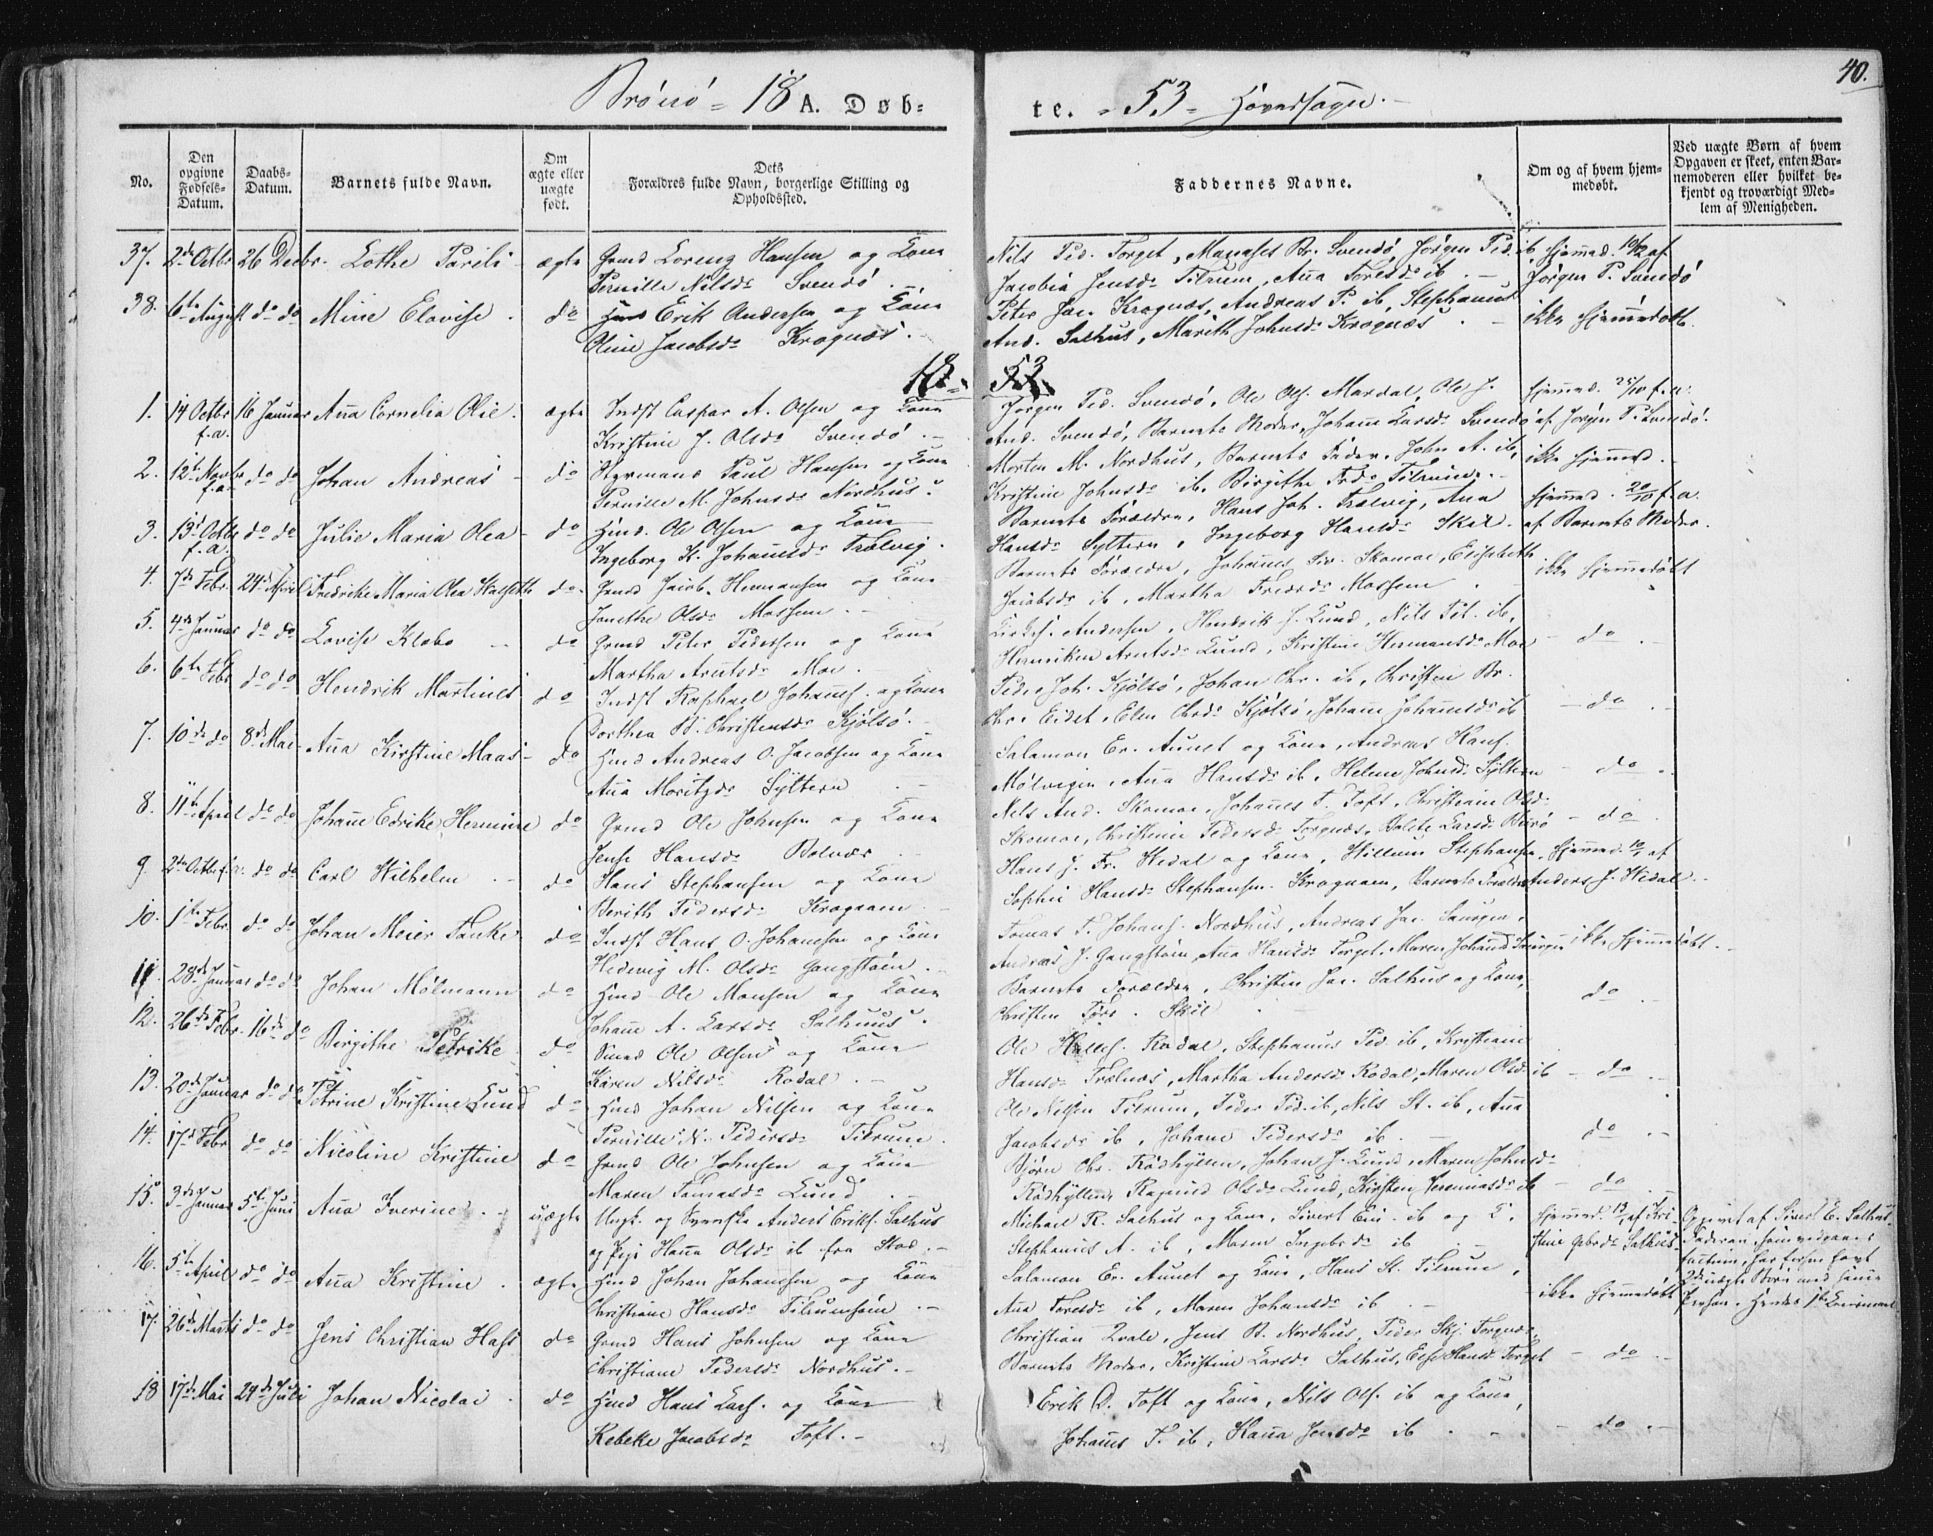 40.
Brönö - 18 A. Døb-
te. - 53 - Hovedsogn. -
No.
Den opgivne Fødsels-Datum.
Daabs-Datum.
Barnets fulde Navn.
Om ægte eller uægte født.
Dets Forældres fulde Navn, borgerlige Stilling og Opholdsted.
Faddernes Navne.
Om og af hvem hjemmedøbt.
Ved uægte Børn af hvem Opgaven er skeet, enten Barnemoderen eller hvilket bekjendt og troværdigt Medlem af Menigheden.
37. 2de Octbr 26 Decbr. Lothe Pareli - ægte Grmd Lorenz Hansen og Kone
Pernille Nilsdr Svendö
Nils Ped. Torget, Manases Br. Svendö, Jörgen Ped. ib
Jacobia Jensdr Tilrum, Ana Toresdr ib. -
hjemmed. 10/12 af
Jörgen P. Svendö
38. 6te August do do Mine Elovise. do Erik Andersen og Kone
Oline Jacobsdr Krognæs. -
Peter Jac. Krognæs, Andreas P. ib, Stephanus
And. Salhus, Marith Johnsdr Krognæs
ikke hjemmedöbt.
18 - 53.
1. 14 Octbr f.a. 16 Januar Ana Cornelia Olie. ægte Indst Caspar A. Olsen og Kone
Kristine J. Olsdr Svendö. -
Jörgen Ped. Svendö, Ole Ols. Mardal, Ole J.
And. Svendö, Barnets Moder, Johane Larsdr Svendö
hjemmed. 25/10 f.a.
af Jörgen P. Svendö.
2. 12te Novbr f.a. do do Johan Andreas - do Styrmand Paul Hansen og Kone
Pernille M. Johnsdr Nordhus.
Morten M. Nordhus, Barnets Fader, John A. ib,
Kristine Johnsdr ib, Birgithe Pedr Tilrum. -
ikke hjemmed. -
3. 13d Octbr f.a. do do Julie Maria Olea - do Hmd. Ole Olsen og Kone
Ingeborg K. Johansdr Trælvig.
Barnets Forældre, Hans Joh. Trælvig, Ana
Hansdr Syltern, Ingeborg Hansdr Skil. -
hjemmed. 20/10 f.a.
af Barnets Moder.
4. 7de Febr. 24de April Fredrike Maria Olea Hassethe do. Grmd Jacob Hermansen og Kone
Janethe Olsdr Mossem. -
Barnets Forældre, Johannes Siv. Skomoe, Elisabeth
Jacobsdr ib, Martha Fredrdr Mossem
ikke hjemmedöbt
5. 4de Januar do do Lovise Klebo - do Grmd Peter Pedersen og Kone
Martha Arntsdr Moe.
Andersen, Hendrik J. Lund, Nils Pet. ib,
Henriken Arntsdr Lund, Kristine Hermansdr Moe
- do. -
6. 6te Febr do do Hendrik Martines do Indst Raphael Johans. og Kone
Dorthea B. Christensdr Kjölsö. -
Peder Joh. Kjölsö, Johan Chr. ib, Christen Br.
Chr. Eidet, Elen Chrdr Kjölsö, Johane Johansdr ib
- do. -
7. 10de do 8de Mai Ana Kirstine Maas - do Hmd Andreas O. Jacobsen og Kone
Ana Moritzdr Syltern -
Salamon Er. Aunet og Kone, Andreas Hans.
Mölvigen, Ana Hansdr ib, Helene Johnsdr Syltern
- do -
8. 11te April do do Johane Edrike Hermine do Grmd Ole Johnsen og Kone
Jense Hansdr Bolvær
Nils And. Skomoe, Johanes P. Toft, Christiane Olsdr
Skomoe, Christine Pedersdr Torgnæs, Bolete Larsdr Burö
- do -
9. 2den Octbr f.a. do do Carl Wilhelm - do Hans Stephansen og Kone
Berith Pedersdr Krognæm. -
Hans J. Fr. Hedal og Kone, Willum Stephansen
Sophie Hansdr Stephansen Krognæm, Barnets Forældre
hjemmed. 10/1 af
Anders J. Wedal. -
10. 1ste Febr. do do Johan Meier Tanke do Indst Hans O. Johansen og Kone
Hedevig M. Olsdr Gangstöen. -
Tomas P. Johans. Nordhus, Andreas Jac. Saurgen,
Andreas J. Gangstöen, Ana Hansdr Torget, Maren Johansdr Saurgen
ikke hjemmedöbt. -
11. 28de Januar do do Johan Mölmann do Hmd Ole Monsen og Kone
Johane A. Larsdr Salhuus.
Barnets Forældre, Christen Jac. Salhus og Kone,
Christen Tore. Skil
do -
12. 26de Febr. 16de do Birgithe Petrike do Ole Olsen og Kone
Karen Nilsdr Rodal. -
Ole Hallef. Rodal, Stephanus Ped. ib, Kristiane
Hansdr Trælnæs, Martha Andersdr Rodal, Maren Olsdr ib
- do -
13. 20de Januar do do Petrine Kristine Lund do Hmd Johan Nilsen og Kone
Pernille N. Pedersdr Tilrum.
Ole Nilsen Tilrum, Peder Ped. ib, Nils St. ib, Ana
Jacobsdr ib, Johane Pedersdr ib. -
do -
14. 17de Febr. do do Nicoline Kristine do Grmd Ole Johnsen og Kone
Maren Tomasdr Lund
Björn Chr. Rödhyllen, Johan J. Lund, Maren Johnsdr
Rödhyllen, Ragnild Olsdr Lund, Kirsten Jeremiasdr ib
- do -
15. 3de Januar 5te Juni Ana Iverine. - uægte Ungk. og Svenske Anders Eriks. Salhus
og Pige Hana Olsdr ib fra Stod. -
Michael R. Salhus og Kone, Sivert Ein. ib og K.
Stephanus A. ib, Maren Ingebrdr ib -
hjemmed. 13/1 af Kristine Ipbrdr Salhus
Opgivet af Sivert E. Salhus.
Faderen, som vedgaaer
factum, har forhen havt
2de uægte Börn med samme
Person. Hendes 1ste Leiermaal
16. 5te April do do Ana Kristine. ægte Hmd Johan Johansen og Kone
Christiane Hansdr Tilrumsöen. -
Salamon Er. Aunet og Kone, Hans St. Tilrum,
Ana Toresdr ib, Maren Johansdr ib -
ikke hjemmedöbt
17. 26de Marts do do Jens Christian Hass do Grmd Hans Johnsen og Kone
Christiane Pedersdr Nordhus. -
Christian Qvale, Jens B. Nordhus, Peder Skj. Torgnæs,
Barnets Moder, Kristine Larsdr Salhus, Else Hansdr Torget
- do -
18 17de Mai 24de Juli Johan Nicolai. do Hmd Hans Lars. og Kone
Rebeke Jacobsdr Toft. -
Erik D. Toft og Kone, Nils Ols. ib og Kone,
Johanes P. ib, Hana Jensdr ib.
- do -